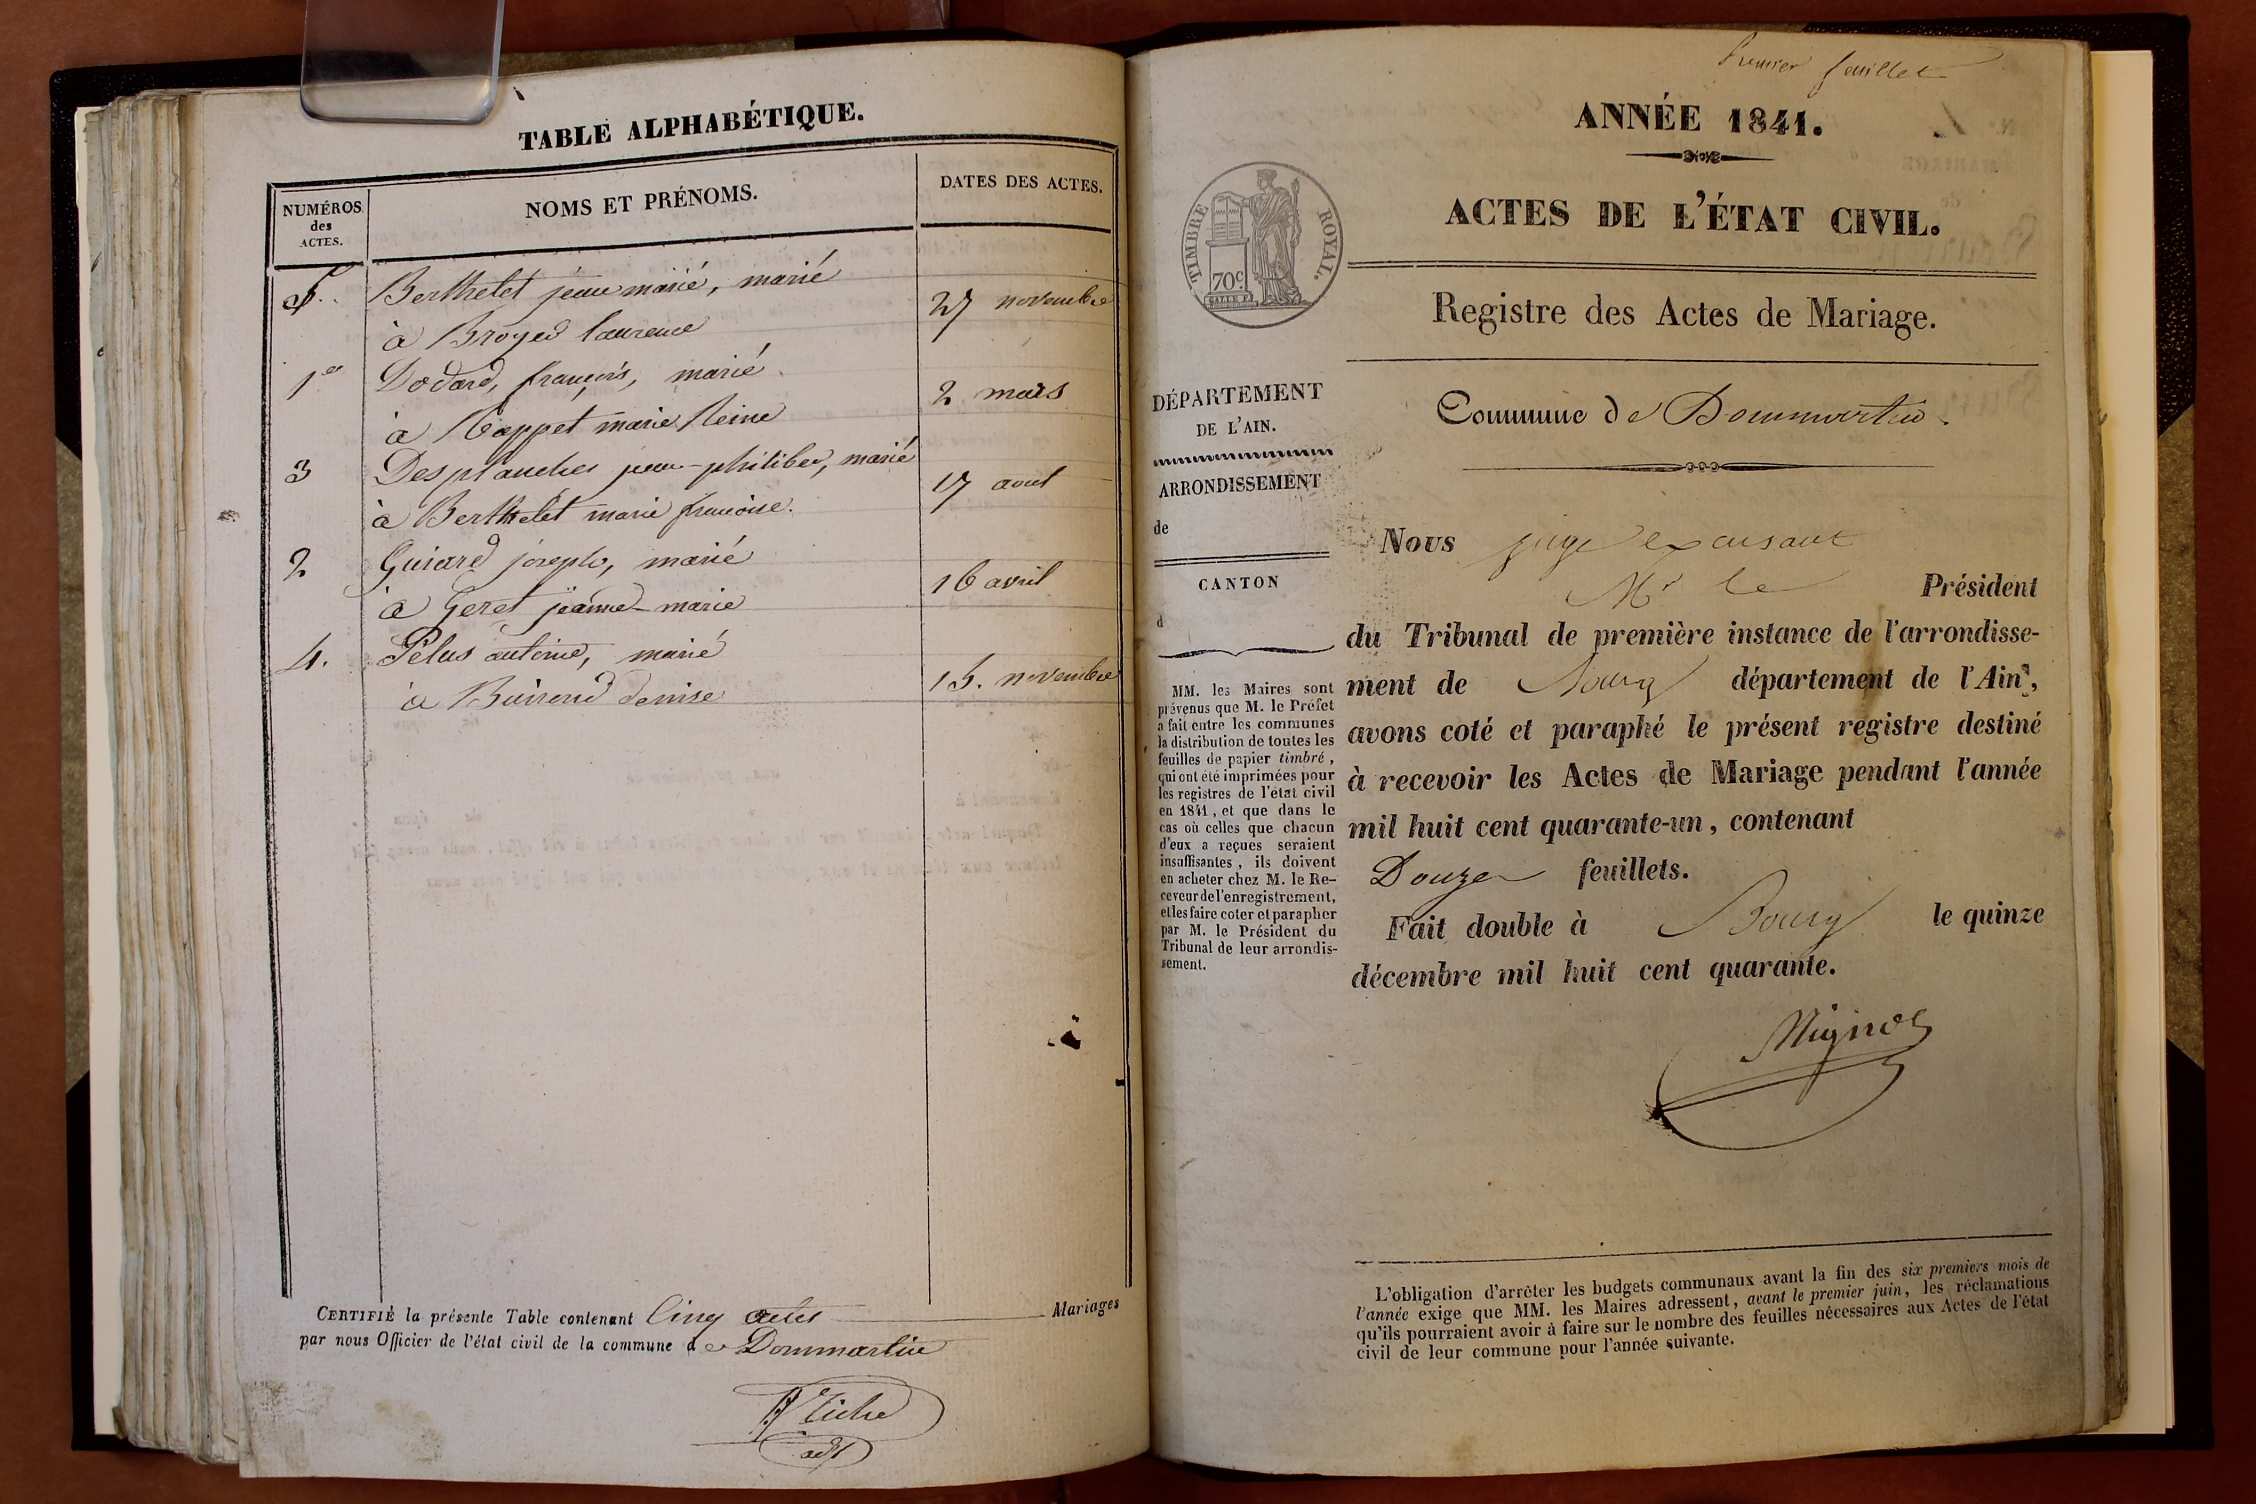 TABLE ALPHABÉTIQUE.
NUMÉROS
des
ACTES.
NOMS ET PRÉNOMS.
DATES DES ACTES.
5. Berthelet jean marié, marié
à Broyer laurence
27 novembre
1er Dodard, françois, marié
à Cappet marie Reine
2 mars
3 Desplanches jean-philiber, marié
à Berthelet marie francoise.
17 avril
2 Guiard joseph, marié
à Geret jeanne-marie
16 avril
4. Pelus antoine, marié
à Buirend denise
15. novembre
CERTIFIÉ la présente Table contenant Cinq actes Mariages
par nous Officier de l'état civil de la commune de Dommartin
adj
Premier feuillet
ANNÉE 1841.
ACTES DE L'ÉTAT CIVIL.
TIMBRE ROYAL.
70c.
Registre des Actes de Mariage.
Commune de Dommartin.
DÉPARTEMENT
DE L'AIN.
ARRONDISSEMENT
de
CANTON
d
MM. les Maires sont
prévenus que M. le Préfet
a fait entre les communes
la distribution de toutes les
feuilles de papier timbré,
qui ont été imprimées pour
les registres de l'état civil
en 1841, et que dans le
cas où celles que chacun
d'eux a reçues seraient
insuffisantes, ils doivent
en acheter chez M. le Re-
ceveur de l'enregistrement,
et les faire coter et parapher
par M. le Président du
Tribunal de leur arrondis-
sement.
Nous juge excusant
Mr le Président
du Tribunal de première instance de l'arrondisse-
ment de Bourg département de l'Ain,
avons coté et paraphé le présent registre destiné
à recevoir les Actes de Mariage pendant l'année
mil huit cent quarante-un, contenant
Douze feuillets.
Fait double à Bourg le quinze
décembre mil huit cent quarante.
Mignot
L'obligation d'arrêter les budgets communaux avant la fin des six premiers mois de
l'année exige que MM. les Maires adressent, avant le premier juin, les réclamations
qu'ils pourraient avoir à faire sur le nombre des feuilles nécessaires aux Actes de l'état
civil de leur commune pour l'année suivante.